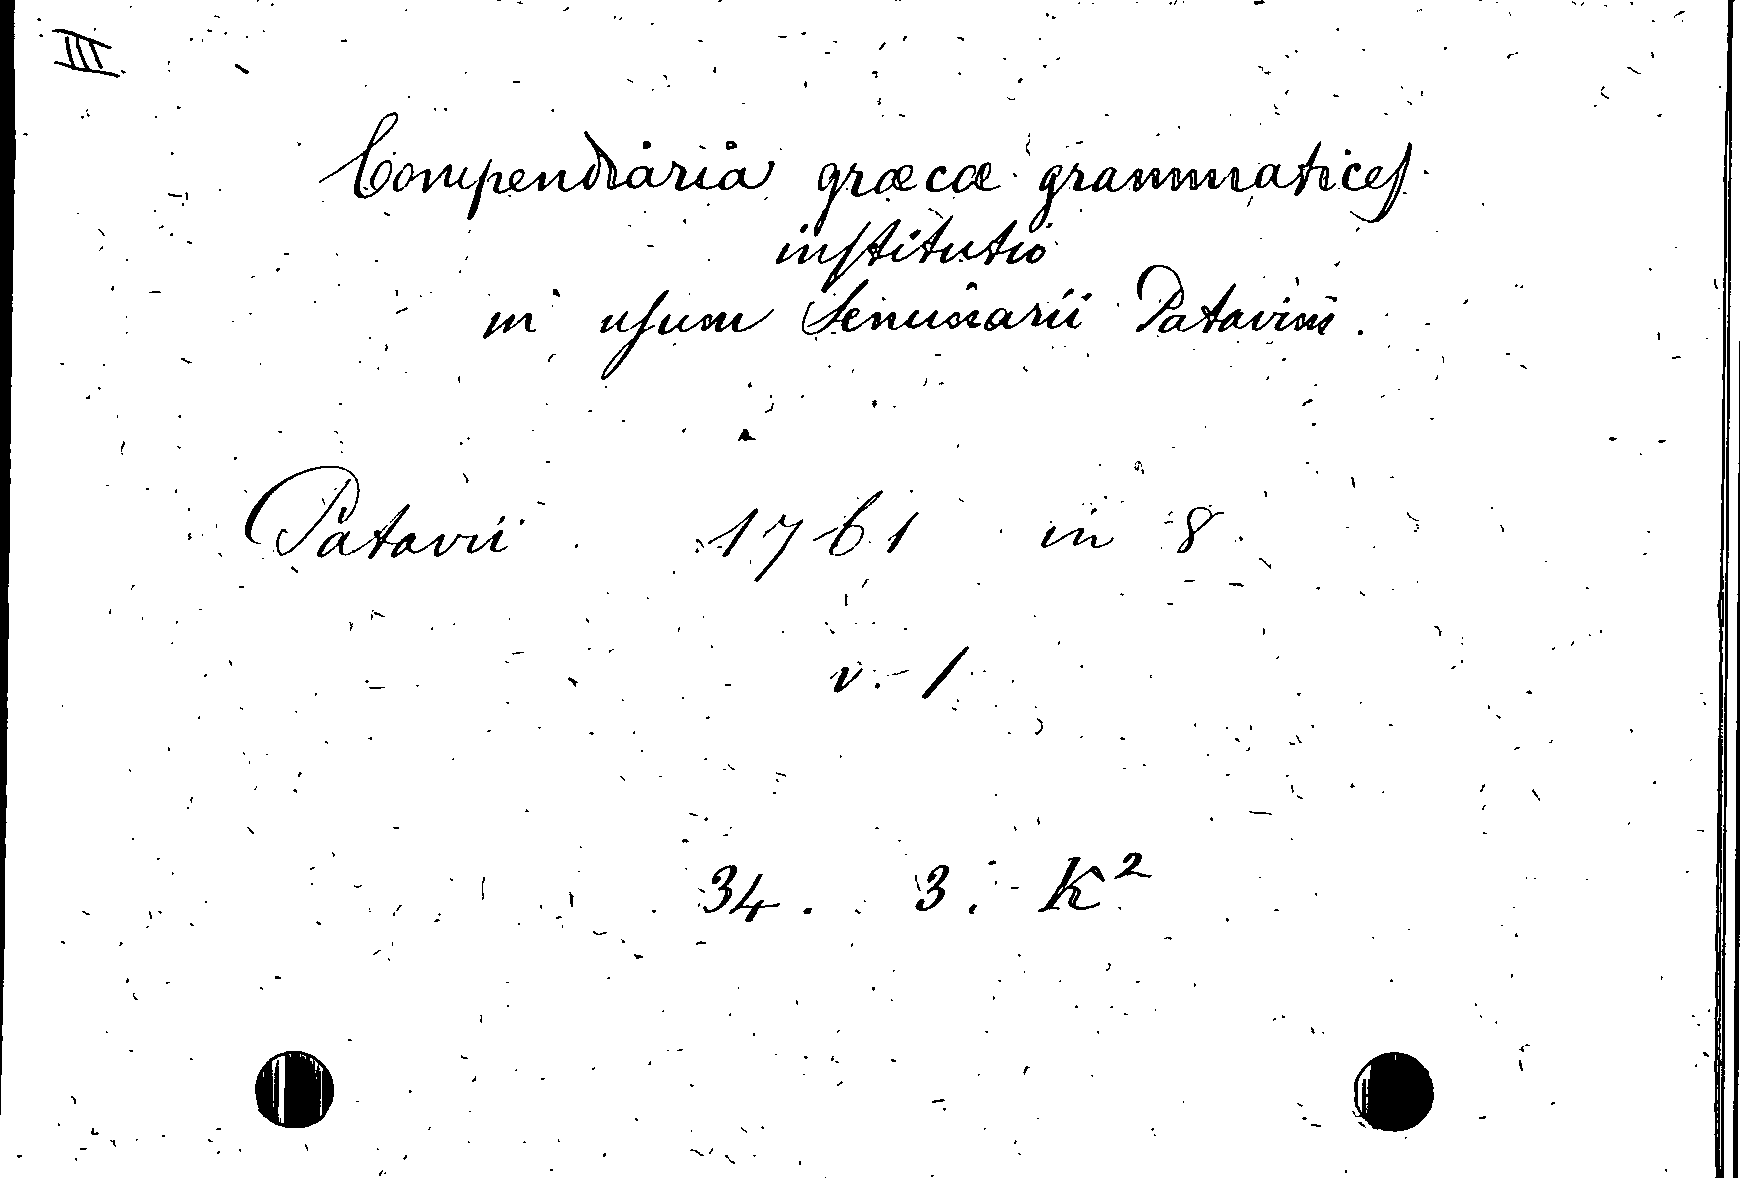 III
Compendiaria græcæ grammatices
institutio
in usum Seminarii Patavini.
Patavii 1761 in 8.
v. - 1
34. 3. K²